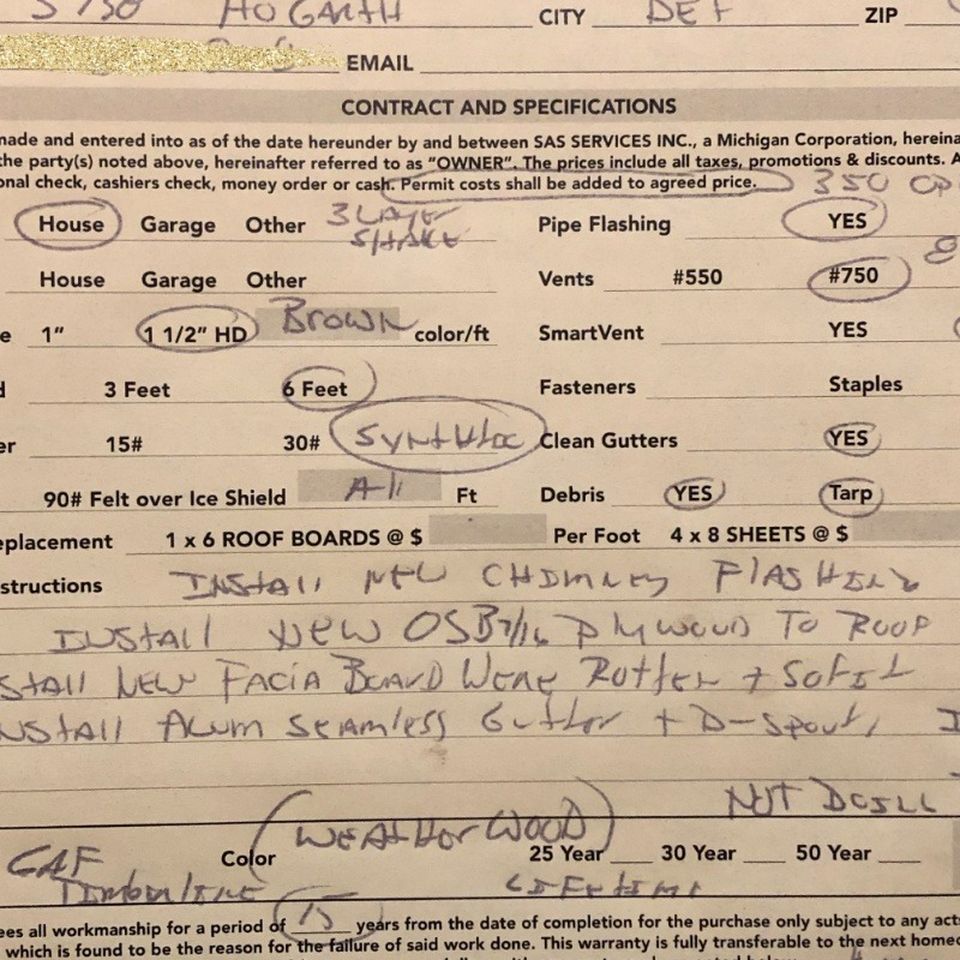 HOGARTH CITY DET ZIP
EMAIL
CONTRACT AND SPECIFICATIONS
made and entered into as of the date hereunder by and between SAS SERVICES INC., a Michigan Corporation, hereina
the party(s) noted above, hereinafter referred to as "OWNER". The prices include all taxes, promotions & discounts. A
onal check, cashiers check, money order or cash. Permit costs shall be added to agreed price. 350
House Garage Other 3 LAYER SHAKE Pipe Flashing YES
House Garage Other Vents #550 #750
e 1" 1 1/2" HD Brown color/ft SmartVent YES
d 3 Feet 6 Feet Fasteners Staples
er 15# 30# Clean Gutters YES
90# Felt over Ice Shield All Ft Debris YES Tarp
eplacement 1 x 6 ROOF BOARDS @ $ Per Foot 4 x 8 SHEETS @ $
structions INSTAll NEW CHIMNEY FlASHING
INSTAll NEW OSB 7/16 PlyWOOD TO ROOF
STAll NEW FACIA BOARD Were Rotten + Sofit
NSTAll Alum Seamless Gutter + D-Spout,
NOT
GAF Color (WEATHEr WOOD) 25 Year 30 Year 50 Year
TImberlINE LIFEtIME
ees all workmanship for a period of 15 years from the date of completion for the purchase only subject to any acts
which is found to be the reason for the failure of said work done. This warranty is fully transferable to the next homeo